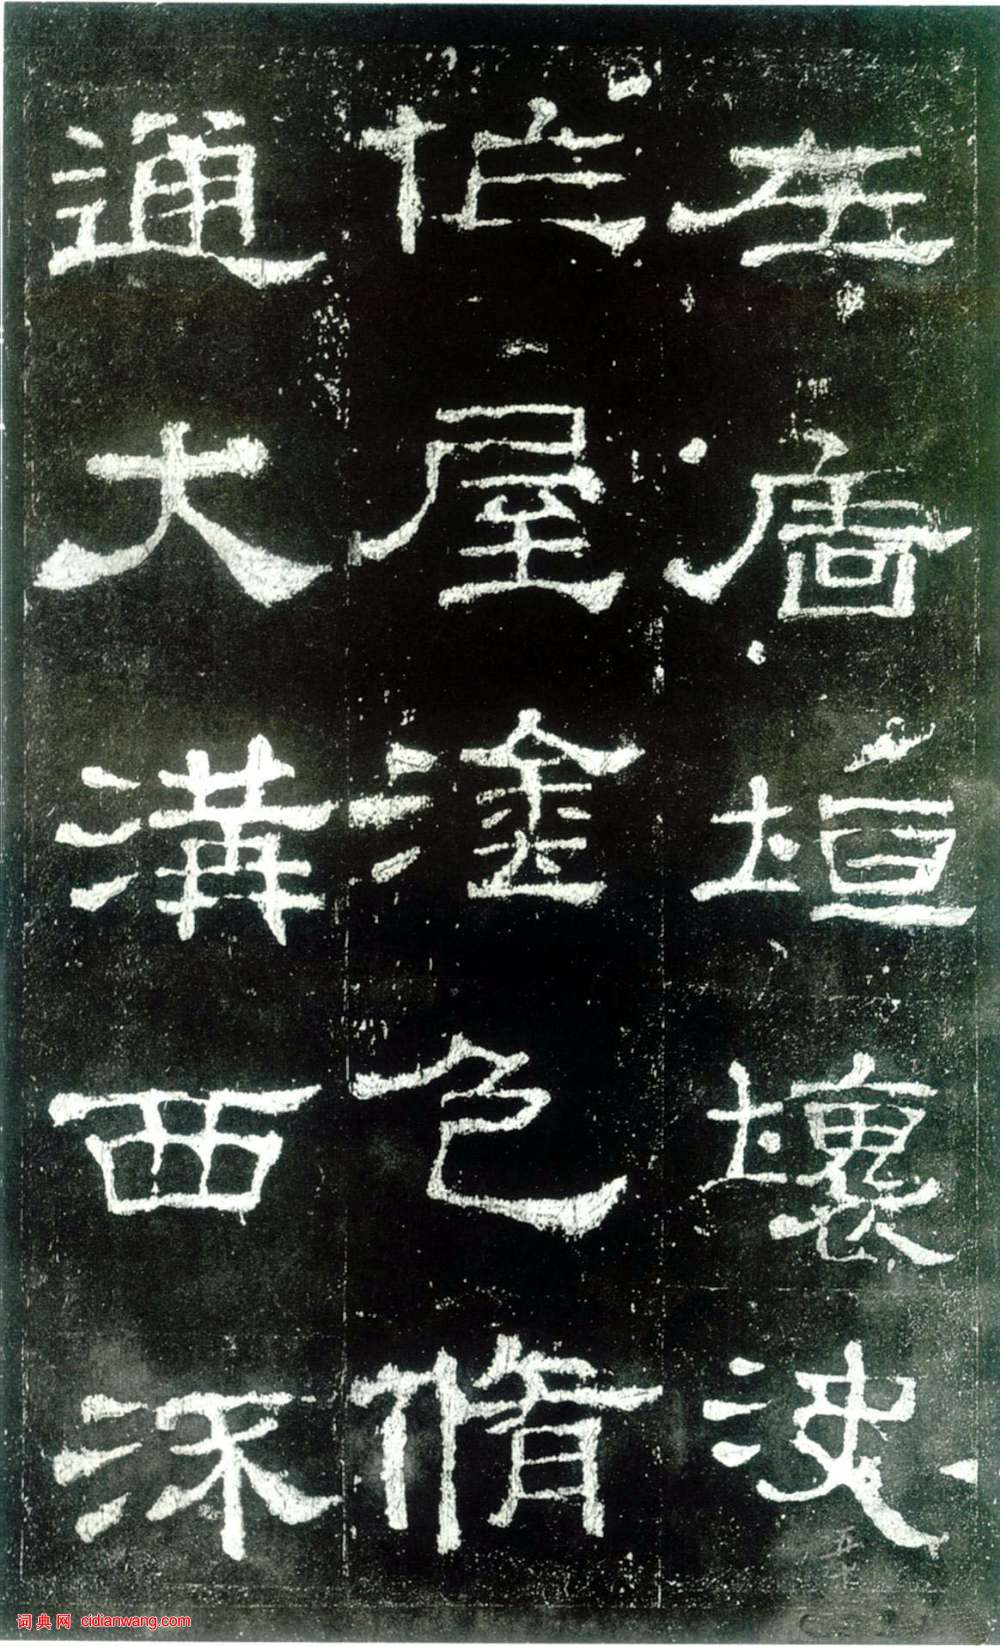 左廧垣壞決
作屋塗色脩
通大溝西流
词典网 cidianwang.com